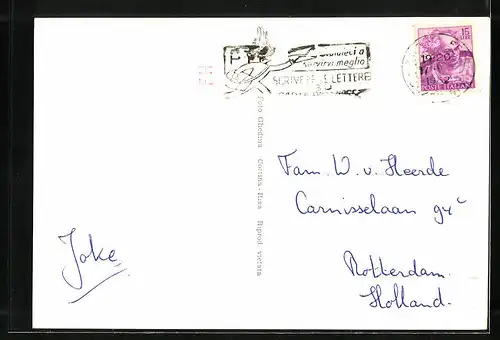 PT
aiutateci a
servirvi meglio
SCRIVETE LE LETTERE
15
LIRE
POSTE ITALIANE
Foto Ghedina Cortina - Riprod. vietata
Fam. W. v. Heerde
Carnisselaan 94c
Rotterdam.
Holland.
Joke